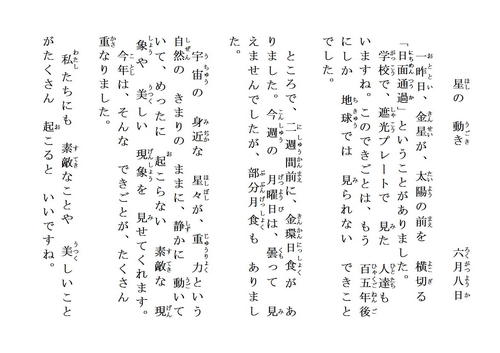 星の 動き 六月八日
一昨日、金星が、太陽の前を 横切る
「日面通過」ということがありました。
学校で、遮光プレートで 見た 人達も
いますね。このできごとは、もう 百五年後
にしか 地球では 見られない できこと
でした。
ところで、二週間前に、金環日食があ
りました。今週の 月曜日は、曇って 見
えませんでしたが、部分月食も ありまし
た。
宇宙の 身近な 星々が、重力という
自然の きまりの ままに、静かに 動いて
いて、めったに 起こらない 素敵な 現
象や 美しい 現象を 見せてくれます。
今年は、そんな できごとが、たくさん
重なりました。
私たちにも 素敵なことや 美しいこと
がたくさん 起こると いいですね。